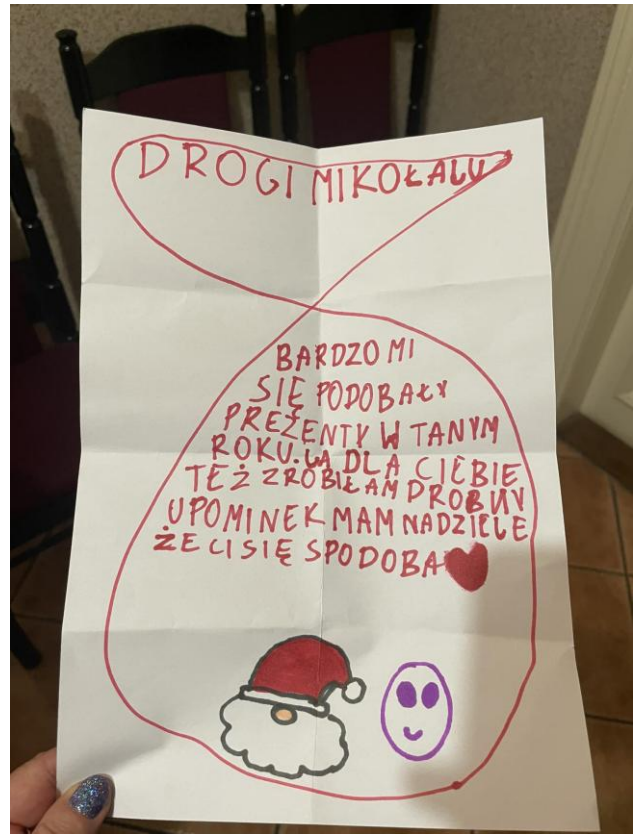 DROGI MIKOŁALU
BARDZO MI
SIĘ PODOBAŁY
PREZENTY W TANYM
ROKU. LA DLA CIEBIE
TEŻ ZROBIŁAM DROBNY
UPOMINEK MAM NADZIELE
ŻE CI SIĘ SPODOBA